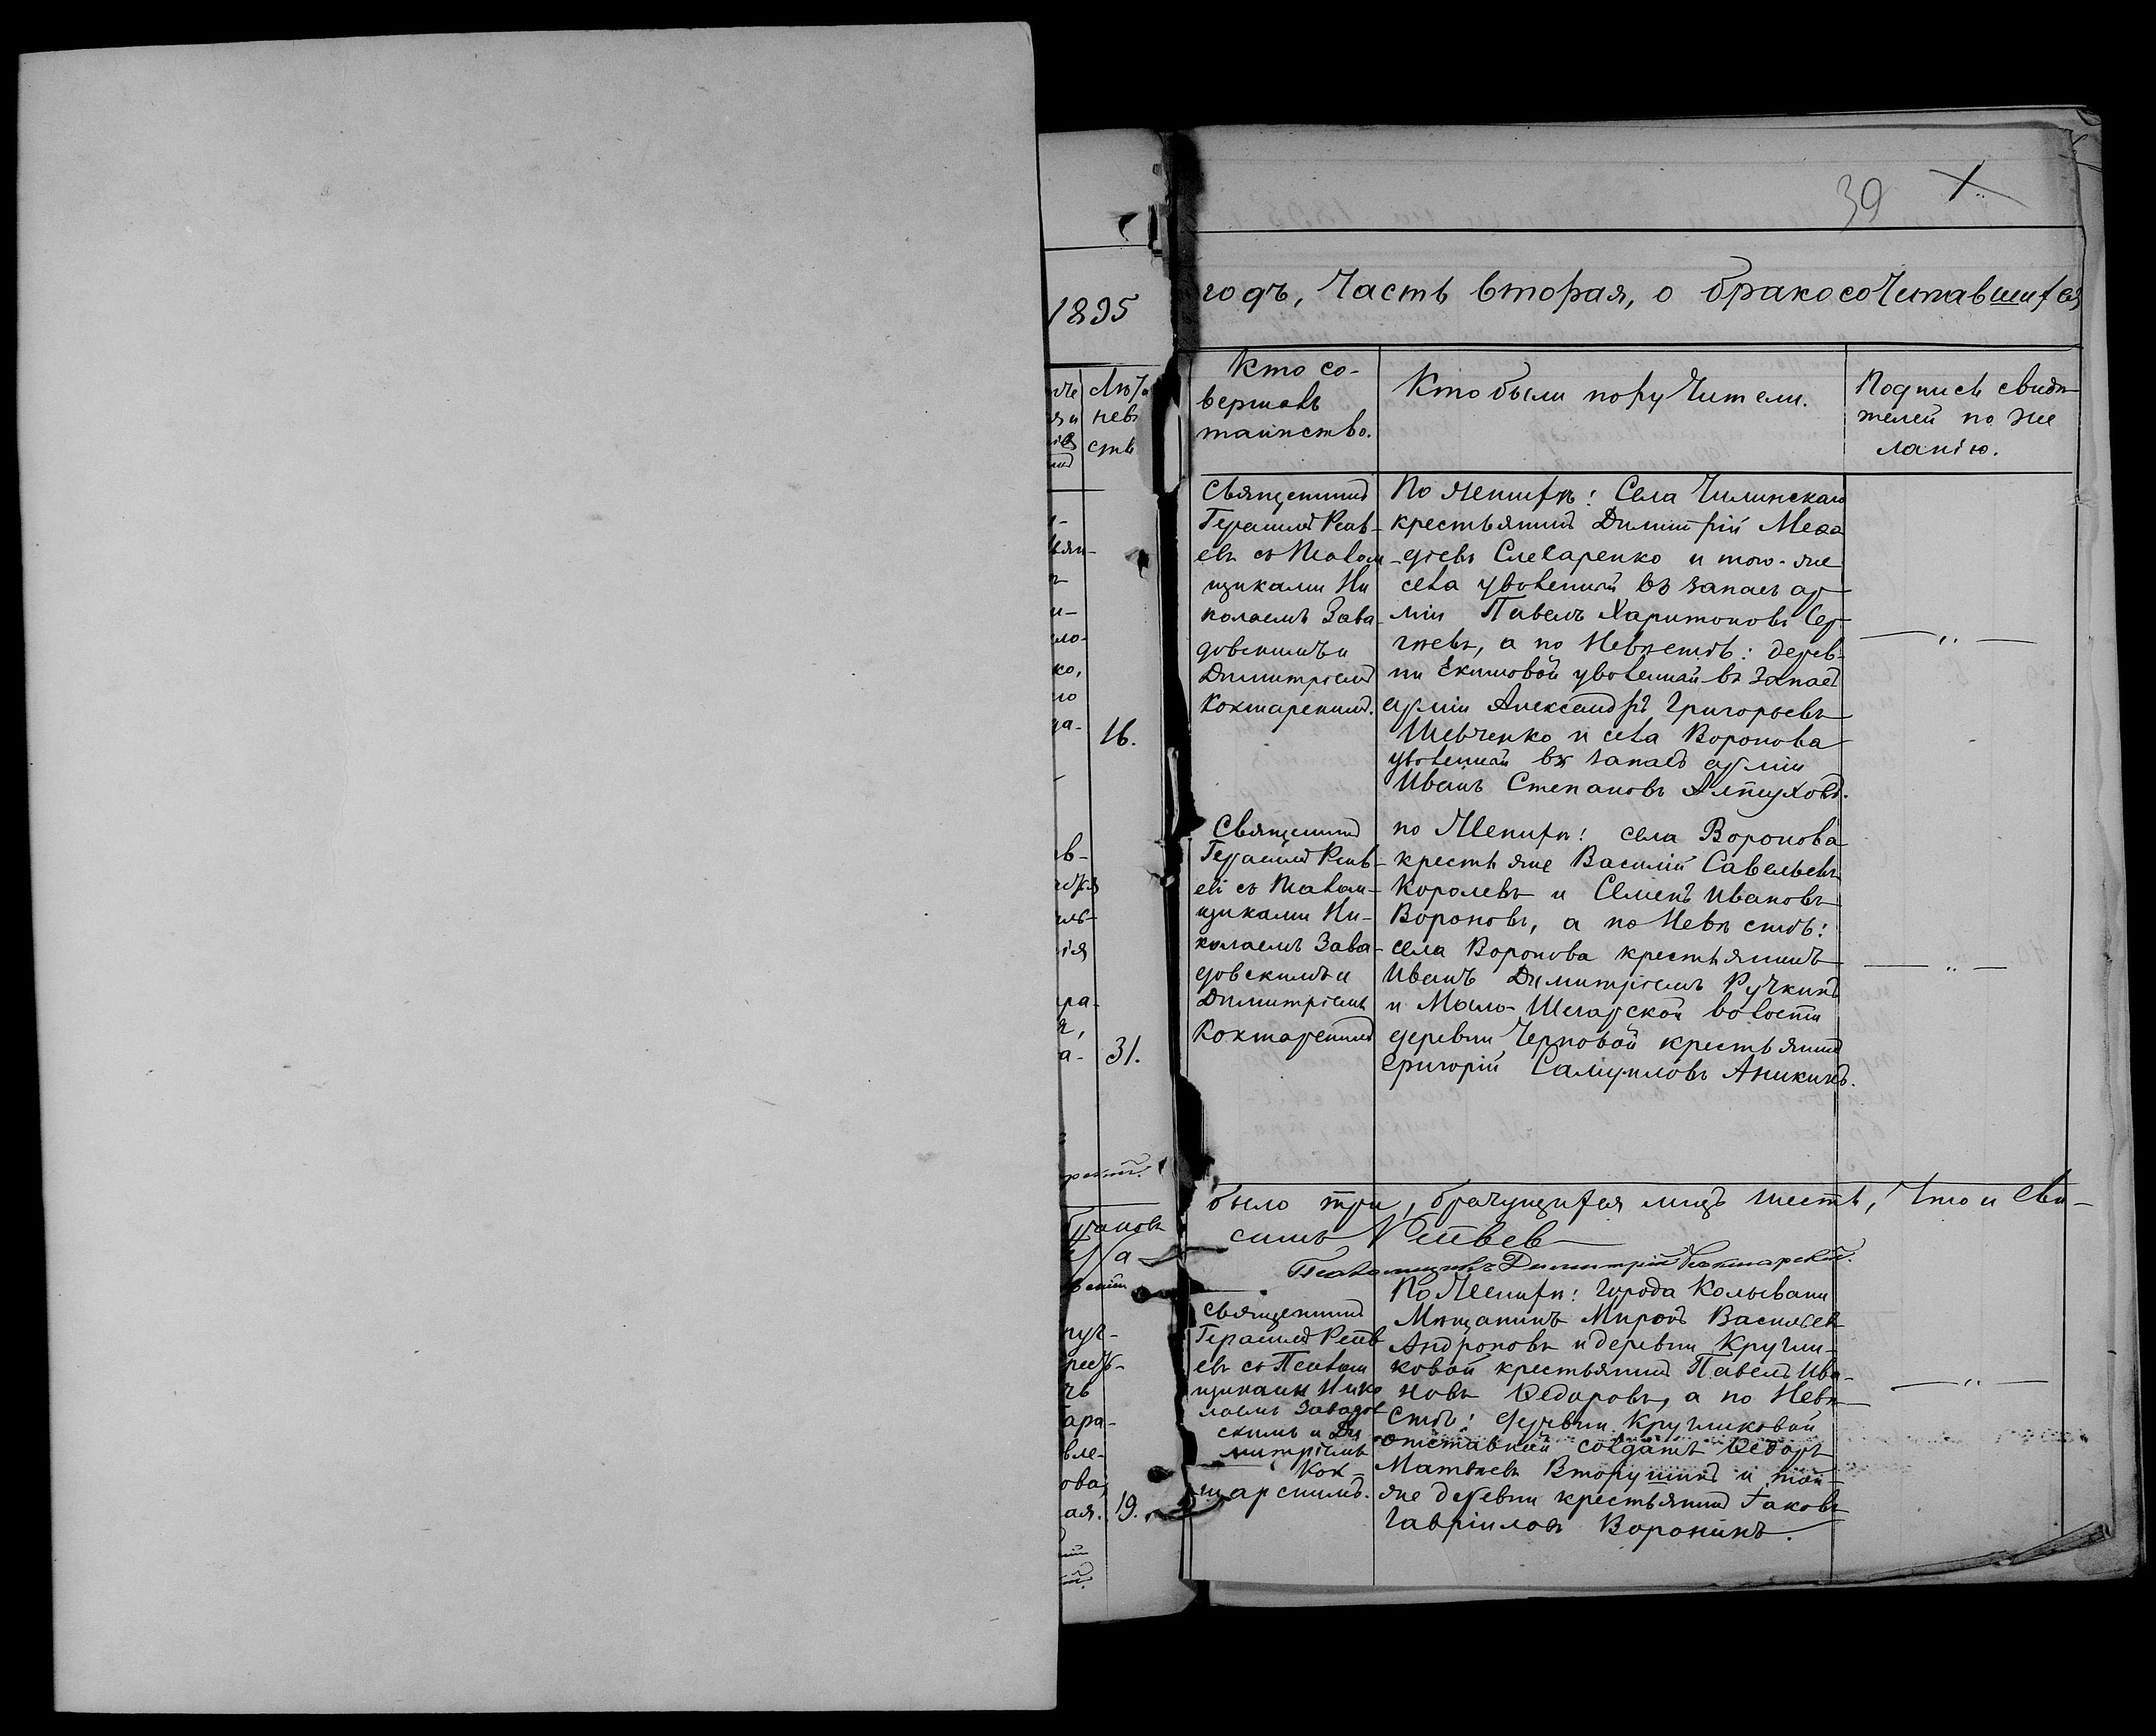 39
1895
годъ, Часть вторая, о бракосочетавшихся
Лѣта
невѣ
сты
Кто со-
вершалъ
таинство.
Кто были поручители.
Подпись свидѣ
телей по же
ланію.
16.
31.
19.
Священникъ
Герасимъ Репь-
евъ съ Псалом
щиками Ни
колаемъ Зава-
довскимъ и
Димитріемъ
Кокшарскимъ.
По женихѣ: Села Чилинскаго
крестьянинъ Димитрій Меѳо
-діевъ Слесаренко и того-же
села уволенный въ запасъ ар-
міи Павелъ Харитоновъ Сер-
гѣевъ, а по Невѣстѣ: дерев-
ни Екимовой уволенный въ Запасъ
арміи Александръ Григорьевъ
Шевченко и села Воронова
уволенный въ запасъ арміи
Иванъ Степановъ Алтуховъ.
Священникъ
Герасимъ Репь-
евъ съ Псалом-
щиками Ни-
колаемъ Зава-
довскимъ и
Димитріемъ
Кокшарскимъ
по Женихѣ: села Воронова
крестьяне Василій Савельевъ
Королевъ и Семенъ Ивановъ
Вороновъ, а по Невѣстѣ:
села Воронова крестьянинъ
Иванъ Димитріевъ Ручкинъ
и Мало-Шегарской волости
деревни Черновой крестьянинъ
Григорій Самуиловъ Аникинъ.
было три, брачущихся лицъ шесть, Что и сви-
симъ Репьев
Псаломщикъ Димитрій Кокшарскій.
Священникъ
Герасимъ Репь
евъ съ Псалом
щиками Нико
лаемъ Завадов
скимъ и Ди
митріемъ
Кок-
шарскимъ.
По Женихѣ: города Колывани
Мѣщанинъ Миронъ Васильев
Андроновъ и деревни Кругли-
ковой крестьянинъ Павелъ Ива-
новъ Ѳедоровъ, а по Невѣ-
стѣ: деревни Кругликовой
отставной солдатъ Ѳедоръ
Матвѣевъ Вторушинъ и той
же деревни крестьянинъ Іаковъ
Гавріиловъ Воронинъ.